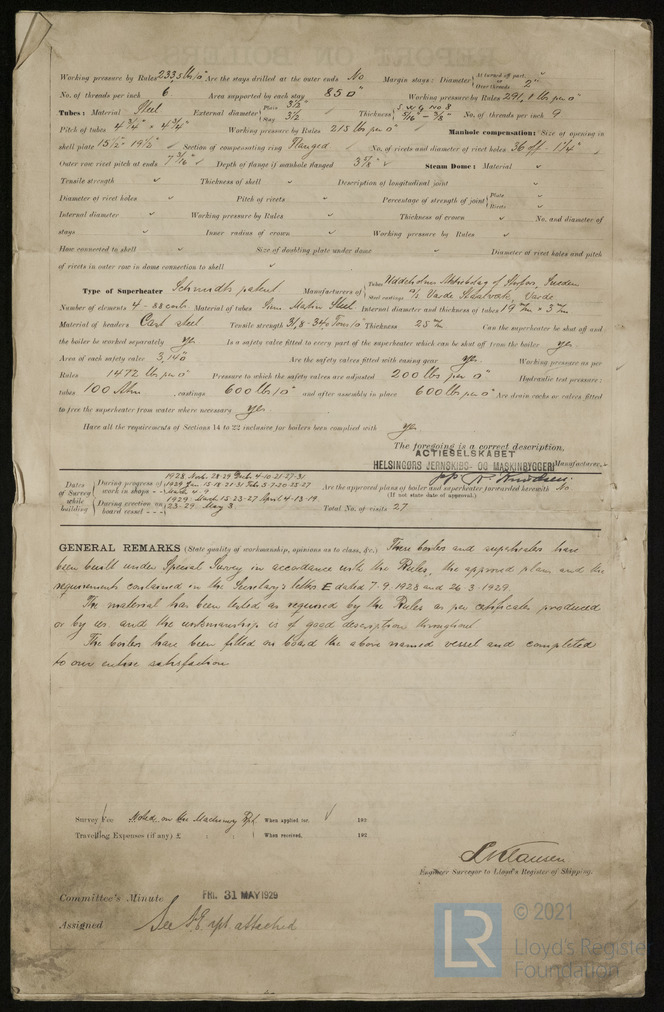 Working pressure by Rules 233,5 lbs/□" Are the stays drilled at the outer ends No Margin stays: Diameter {At turned off part, or Over threads 2"
No. of threads per inch 6 Area supported by each stay 85 □" Working pressure by Rules 291,1 lbs per □"
Tubes: Material Steel External diameter {Plain 3½" Stay 3½ Thickness {S.W.G. No 8 5/16" – 3/8" No. of threads per inch 9
Pitch of tubes 4 3/4" × 4 3/4" Working pressure by Rules 215 lbs per □" Manhole compensation: Size of opening in
shell plate 15½" 19½" Section of compensating ring Flanged No. of rivets and diameter of rivet holes 36 off - 1¼"
Outer row rivet pitch at ends 7 3/16" Depth of flange if manhole flanged 3 5/8" Steam Dome: Material
Tensile strength Thickness of shell Description of longitudinal joint
Diameter of rivet holes Pitch of rivets Percentage of strength of joint {Plate Rivets
Internal diameter Working pressure by Rules Thickness of crown No. and diameter of
stays Inner radius of crown Working pressure by Rules
How connected to shell Size of doubling plate under dome Diameter of rivet holes and pitch
of rivets in outer row in dome connection to shell
Type of Superheater Schmidts patent Manufacturers of {Tubes Uddeholm Aktiebolag Sweden Steel castings A/S Varde Staalværk, Varde
Number of elements 4 - 88 Material of tubes Siem Martin Steel Internal diameter and thickness of tubes 19 m/m × 3 m/m
Material of headers Cast steel Tensile strength 31,8 - 34 Tons/□" Thickness 25 m/m Can the superheater be shut off and
the boiler be worked separately yes Is a safety valve fitted to every part of the superheater which can be shut off from the boiler yes
Area of each safety valve 3,14 □" Are the safety valves fitted with easing gear yes Working pressure as per
Rules 1472 lbs per □" Pressure to which the safety valves are adjusted 200 lbs per □" Hydraulic test pressure:
tubes 100 Atm, castings 600 lbs/□" and after assembly in place 600 lbs per □" Are drain cocks or valves fitted
to free the superheater from water where necessary yes
Have all the requirements of Sections 14 to 22 inclusive for boilers been complied with yes
The foregoing is a correct description,
ACTIESELSKABET
HELSINGØRS JERNSKIBS- OG MASKINBYGGERI Manufacturer.
Dates of Survey while building {During progress of work in shops - - 1928 Nov. 28-29 Decb. 4-10-21-27-31 1929 Jan. 15-18-21-31 Feb. 5-7-20-25-27 March 4-9
During erection on board vessel - - - 1929 March 15-23-27 April 4-13-19-23-29 May 3.
Are the approved plans of boiler and superheater forwarded herewith No
(If not state date of approval.)
Total No. of visits 27
GENERAL REMARKS (State quality of workmanship, opinions as to class, &c.) These boilers and superheaters have
been built under Special Survey in accordance with the Rules, the approved plans and the
requirements contained in the Secretary's letters E dated 7.9.1928 and 26.3.1929.
The material has been tested as required by the Rules as per certificates produced
or by us. and the workmanship is of good description throughout
The boilers have been fitted on board the above named vessel and completed
to our entire satisfaction
Survey Fee Noted on the Machinery Rpt. When applied for, 192
Travelling Expenses (if any) £ : : When received, 192
Engineer Surveyor to Lloyd's Register of Shipping.
Committee's Minute FRI. 31 MAY 1929
Assigned See F.E. rpt attached
LR © 2021
Lloyd's Register
Foundation